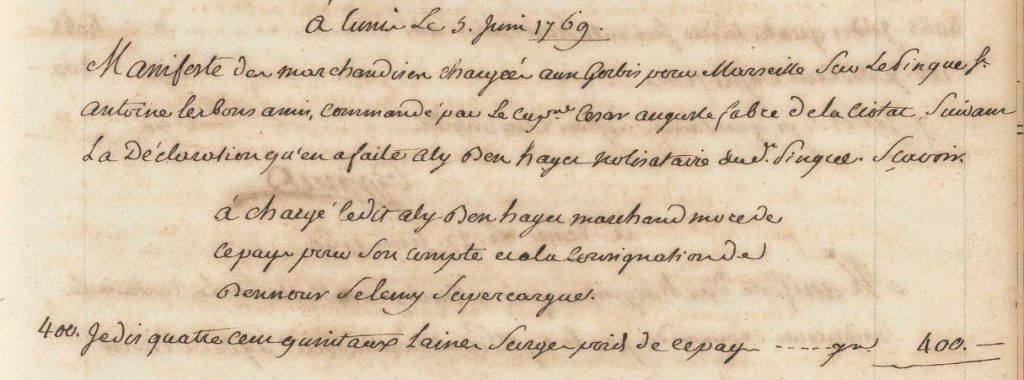 à Tunis Le 5. Juin 1769.
Manifeste des marchandises chargées aux Gerbis pour Marseille Sur Le Pinque St.
Antoine les bons amis, commandé par Le Capne. Cesar auguste fabre de la Ciotat, Suivant
La Déclaration qu'en a faite aly Ben hayet nolisataire du d. Pinque. Sçavoir.
à chargé ledit aly Ben hayet marchand more de
ce pays pour Son compte et a la Consignation de
Bennour Selemy Supercargue.
400. Je dis quatre cent quintaux Laines Surges poids de ce pays ----- qx. 400.—